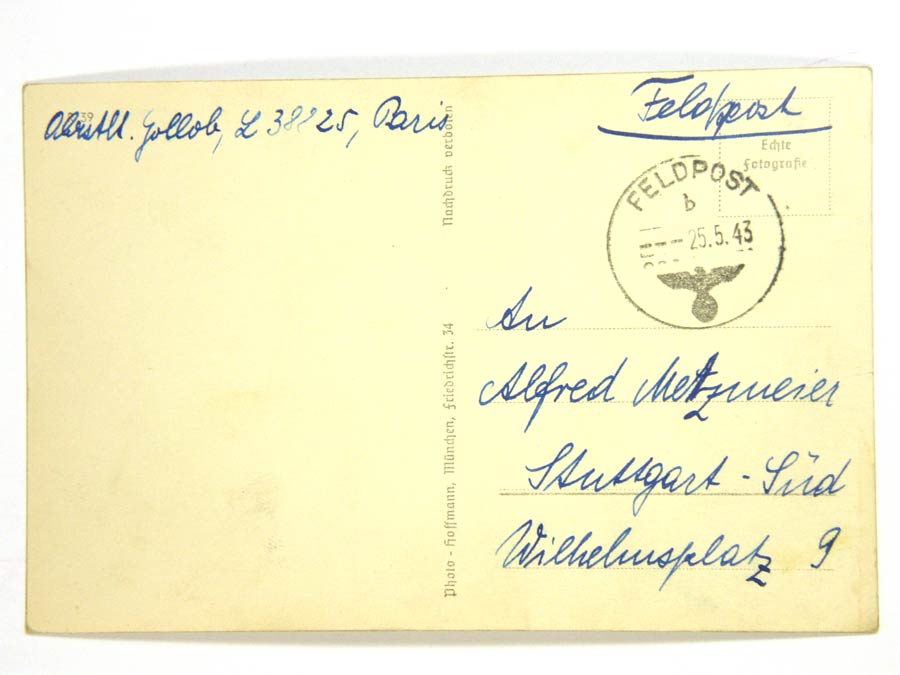 Oberstlt. Gollob, L 38825, Paris
Feldpost
Echte
Fotografie
FELDPOST
b
25.5.43
Nachdruck verboten
Photo-Hoffmann, München, Friedrichstr. 34
An
Alfred Metzmeier
Stuttgart-Süd
Wilhelmsplatz 9